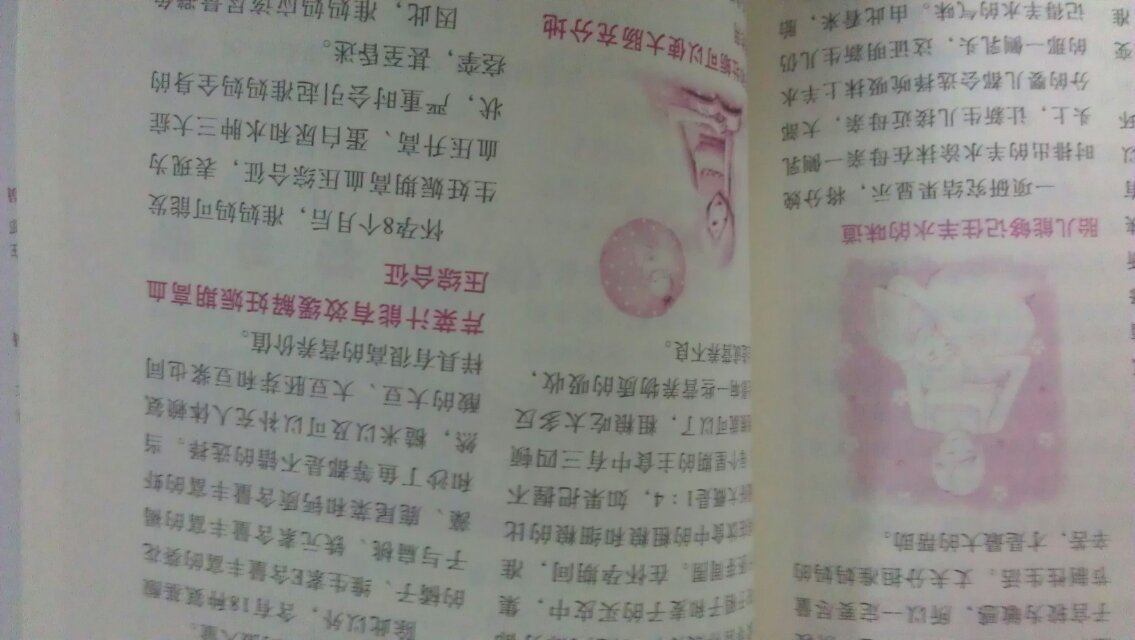 子宫较为敏感，所以一定要尽量
节制性生活。丈夫分担准妈妈的
辛苦，才是最大的帮助。
胎儿能够记住羊水的味道
一项研究结果显示，将分娩
时排出的羊水涂抹在母亲一侧乳
头上，让新生儿接近母亲，大部
分的婴儿都会选择吮吸抹上羊水
的那一侧乳头，这证明新生儿仍
记得羊水的气味。由此看来，胎
子和麦子的荚皮中，集
周围。在怀孕期间，准
饮食中的粗粮和细粮的比
大概是1：4，如果把握不
个星期的主食中有三四顿
就可以了，粗粮吃太多反
一些营养物质的吸收，
营养不良。
可以使大肠充分地
除此以外，含有18种氨基酸
的橘子、维生素E含量丰富的葵花
子与扁桃、铁元素含量丰富的褐
藻、鹿尾菜和钙质含量丰富的虾
和沙丁鱼等都是不错的选择。当
然，糙米以及可以补充人体赖氨
酸的大豆、大豆胚芽和豆浆也同
样具有很高的营养价值。
芹菜汁能有效缓解妊娠期高血
压综合征
怀孕8个月后，准妈妈可能发
生妊娠期高血压综合征，表现为
血压升高、蛋白尿和水肿三大症
状，严重时会引起准妈妈全身的
痉挛，甚至昏迷。
因此，准妈妈应该尽量避免